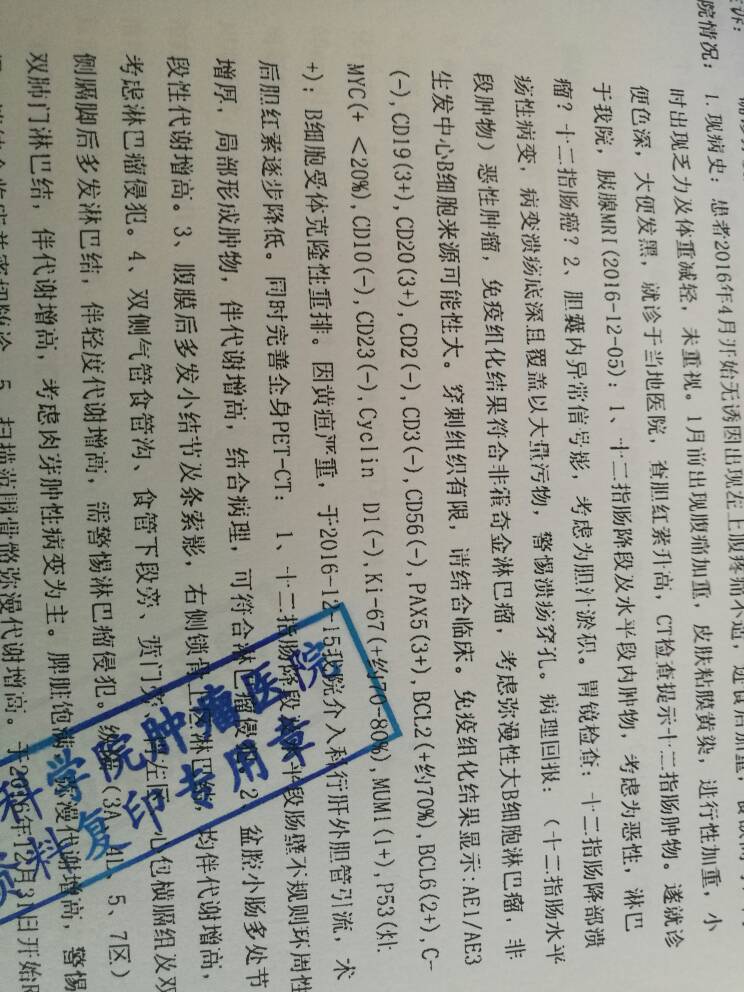 诉：
院情况： 1. 现病史： 患者2016年4月开始无诱因出现左上腹疼痛不适，进食后加重，
时出现乏力及体重减轻，未重视。1月前出现腹痛加重，皮肤粘膜黄染，进行性加重，小
便色深，大便发黑，就诊于当地医院，查胆红素升高，CT检查提示十二指肠肿物。遂就诊
于我院，胰腺MRI(2016-12-05)：1、十二指肠降段及水平段内肿物，考虑为恶性，淋巴
瘤？十二指肠癌？2、胆囊内异常信号影，考虑为胆汁淤积。胃镜检查：十二指肠降部溃
疡性病变，病变溃疡底深且覆盖以大量污物，警惕溃疡穿孔。病理回报：（十二指肠水平
段肿物）恶性肿瘤，免疫组化结果符合非霍奇金淋巴瘤，考虑弥漫性大B细胞淋巴瘤，非
生发中心B细胞来源可能性大。穿刺组织有限，请结合临床。免疫组化结果显示：AE1/AE3
(-),CD19(3+),CD20(3+),CD2(-),CD3(-),CD56(-),PAX5(3+),BCL2(+约70%),BCL6(2+),C-
MYC(+ <20%),CD10(-),CD23(-),Cyclin D1(-),Ki-67(+约70-80%),MUM1(1+),P53(灶
+)；B细胞受体克隆性重排。因黄疸严重，于2016-12-15我院介入科行肝外胆管引流，术
后胆红素逐步降低。同时完善全身PET-CT：1、十二指肠降段及水平段肠壁不规则环周性
增厚，局部形成肿物，伴代谢增高，结合病理，可符合淋巴瘤侵犯。2、盆腔小肠多处节
段性代谢增高。3、腹膜后多发小结节及条索影，右侧锁骨上区淋巴结，均伴代谢增高，
考虑淋巴瘤侵犯。4、双侧气管食管沟、食管下段旁、贲门旁、胃左区、心包横膈组及双
侧膈脚后多发淋巴结，伴轻度代谢增高，需警惕淋巴瘤侵犯。纵隔（3A、4L、5、7区）
双肺门淋巴结，伴代谢增高，考虑肉芽肿性病变为主。脾脏饱满，弥漫代谢增高，警惕
5、扫描范围骨骼弥漫代谢增高。于2016年12月31日开始R
科学院肿瘤医院
资料复印专用章